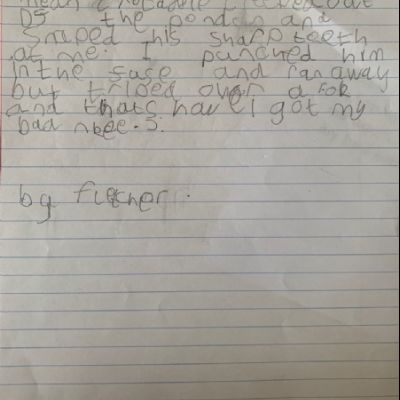 mean crocadile creeped out
of the pond and
Snaped his sharp teeth
at me. I punched him
in the fase and ran away
but triped over a
and thats how I got my
bad nee.
by